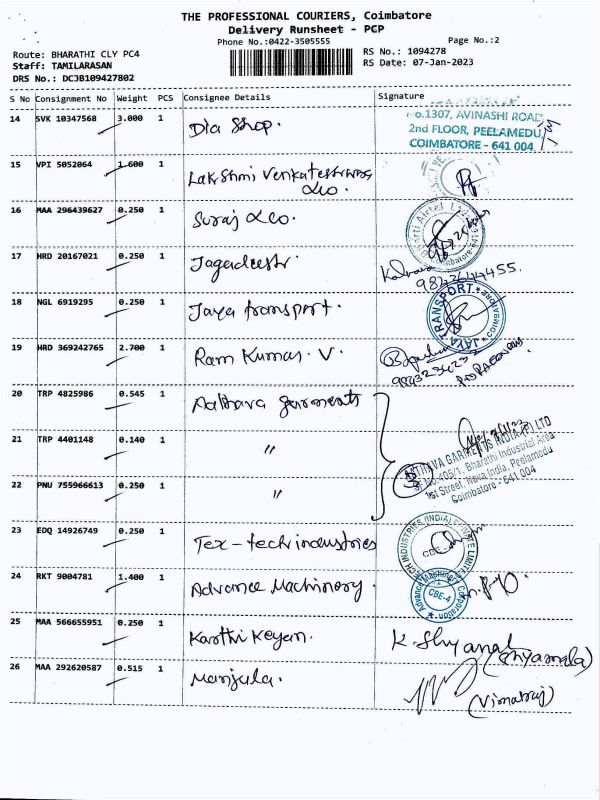 THE PROFESSIONAL COURIERS, Coimbatore
Delivery Runsheet - PCP
Phone No.:0422-3505555
Page No.:2
Route: BHARATHI CLY PC4
RS No.: 1094278
Staff: TAMILARASAN
RS Date: 07-Jan-2023
DRS No.: DC3B109427802
S No Consignment No Weight PCS Consignee Details Signature
14 SVK 10347568 3.000 1 Dia Shop.
No.1307, AVINASHI ROAD,
2nd FLOOR, PEELAMEDU,
COIMBATORE - 641 004.
15 VPI 5052064 1.600 1 Lakshmi Venkateshwara
16 MAA 296439627 0.250 1 Suraj
17 HRD 20167021 0.250 1
18 NGL 6919295 0.250 1 Jaya transport.
JAYA TRANSPORT COIMBATORE
19 HRD 369242765 2.700 1 Ram Kumar. V.
20 TRP 4825986 0.545 1 Aathava garments
21 TRP 4401148 0.140 1 "
22 PNU 755966613 0.250 1 "
AATHAVA GARMENTS INDIA (P) LTD
SF.No.405/1, Bharathi Industrial Area
1st Street, Nava India, Peelamedu
Coimbatore - 641 004
23 EDQ 14926749 0.250 1 Tex-tech industries
TECH INDUSTRIES (INDIA) PRIVATE LIMITED
CBE-4
24 RKT 9004781 1.400 1 Advance Machinery.
Advance Machinery Corporation
CBE-4
25 MAA 566655951 0.250 1 Karthi Keyan.
K. Shyamala
(Shyamala)
26 MAA 292620587 0.515 1 Manjula.
(Vimalraj)